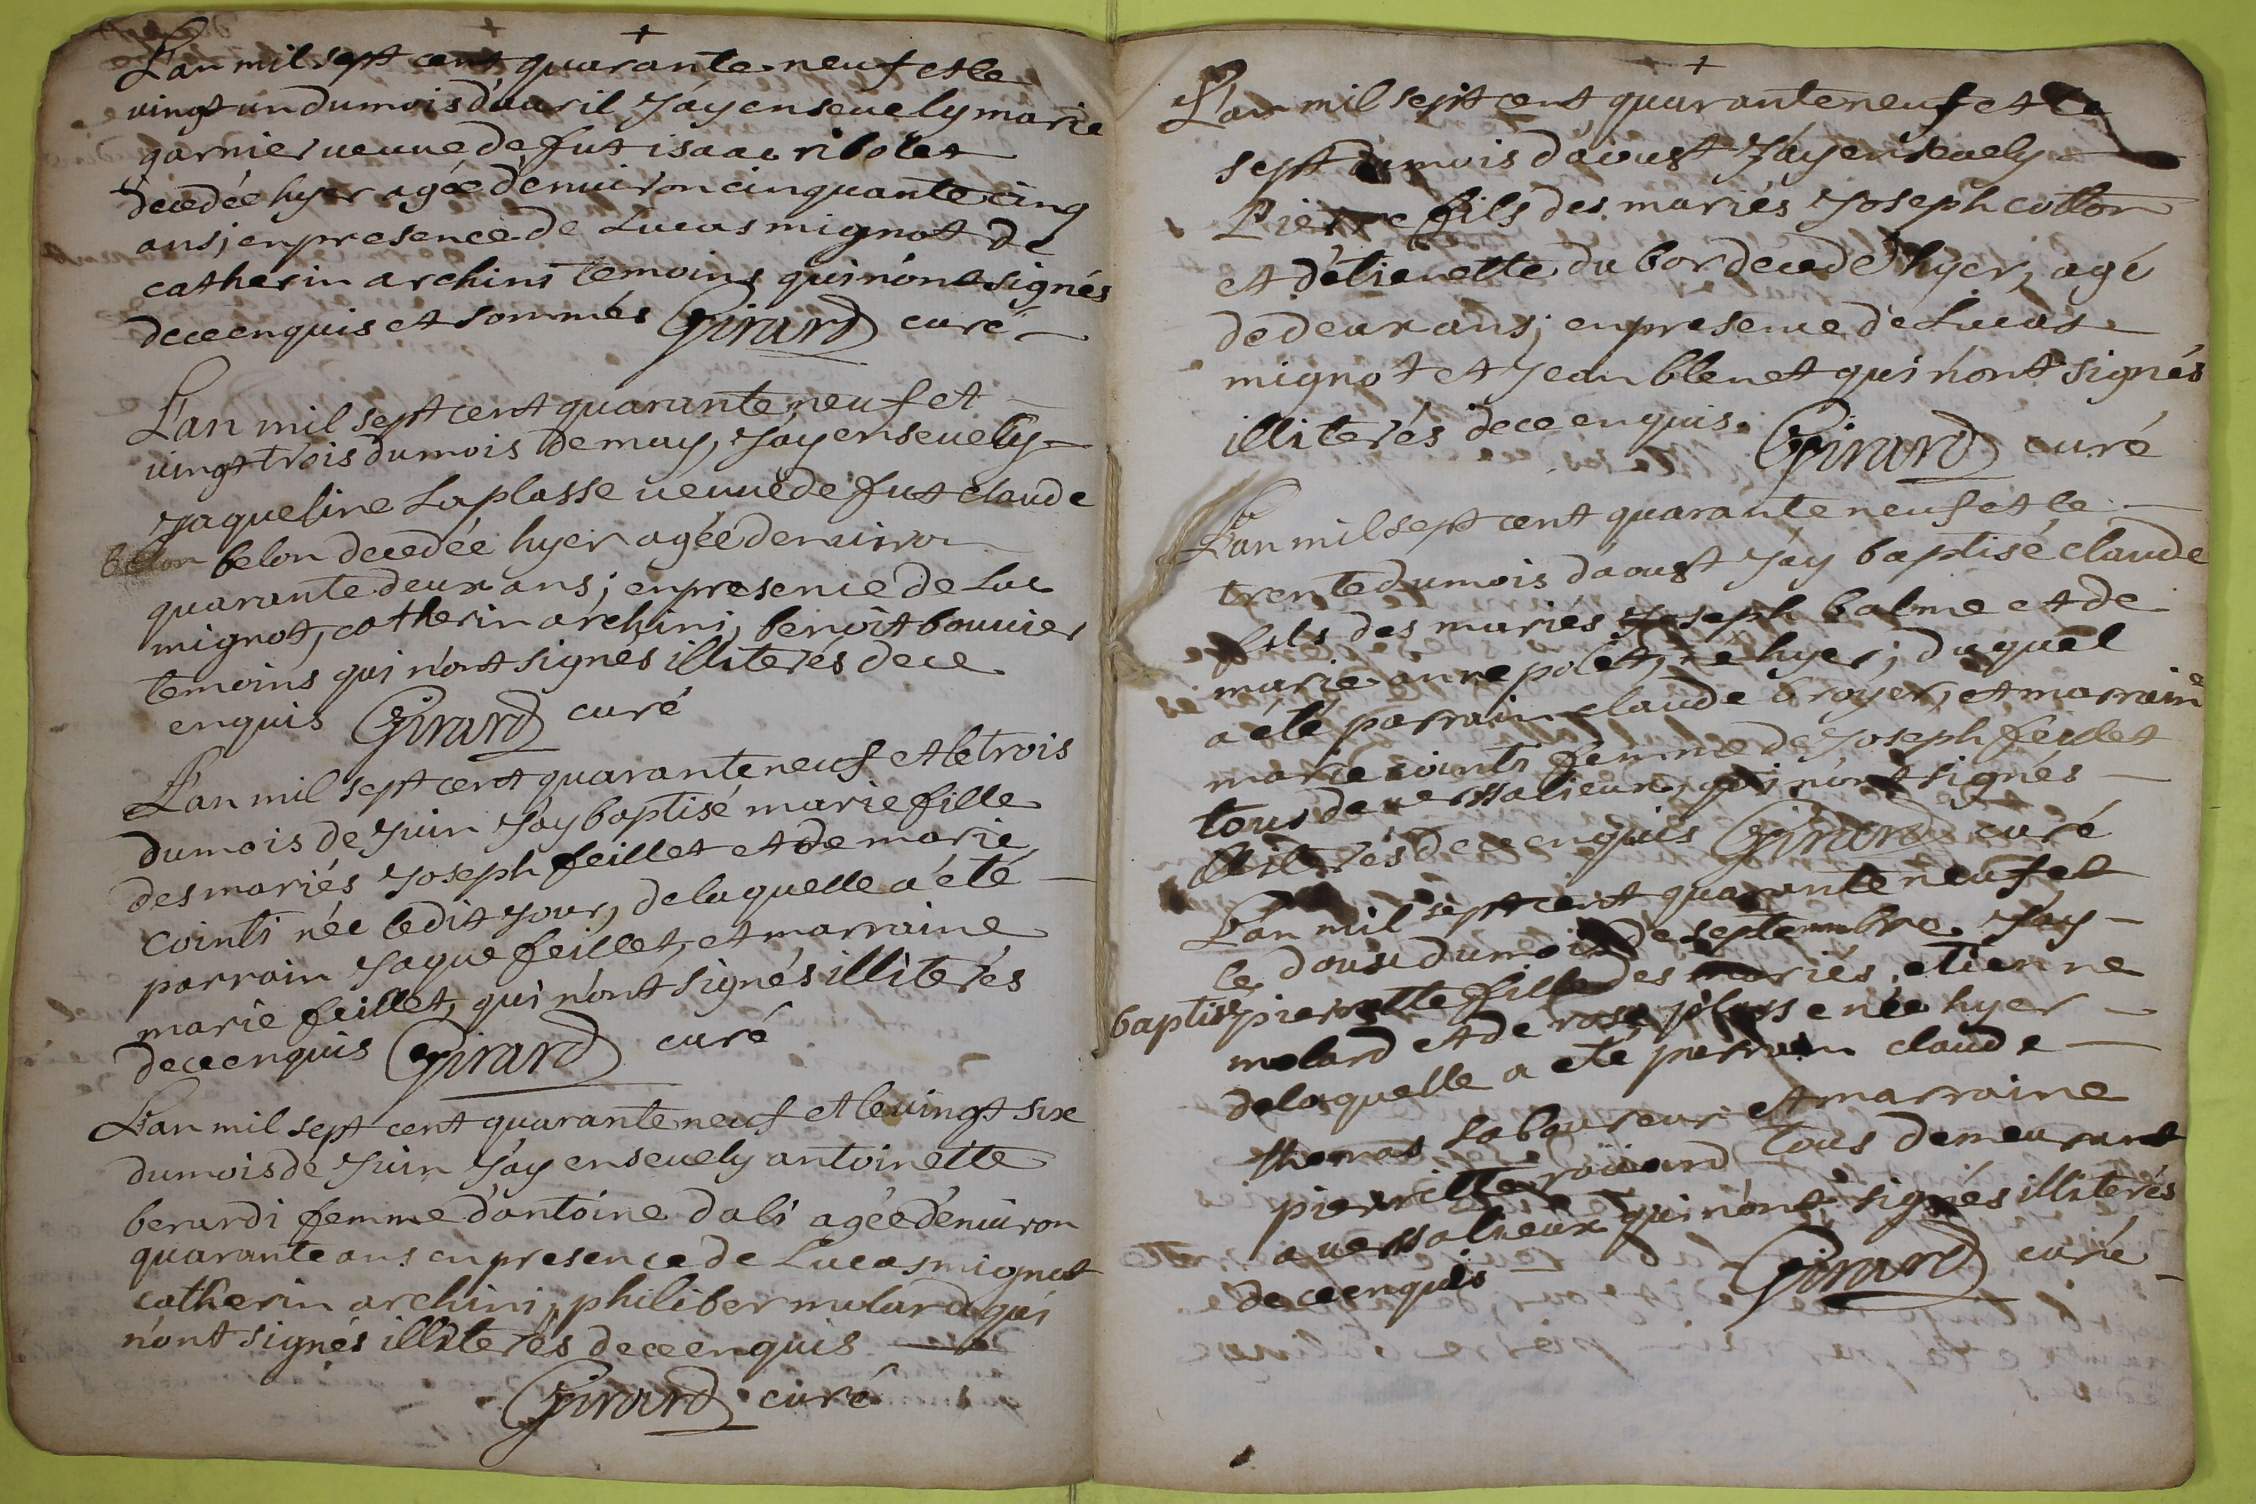 L'an mil sept cent quarante neuf et le
vingt un du mois d'auril J'ay enseuely marie
garnier ueuue de fut isaac ribolet
decedée hyer agée d'enuiron cinquante cinq
ans; en presence de Lucas mignot de
catherin archini temoins qui n'ont signés
de ce enquis et sommés Girard curé
L'an mil sept cent quarante neuf et
uingt trois du mois de may, J'ay enseuely
Jaqueline Laplasse ueuue de fut claude
belon belon decedée hyer agée denuiron
quarante deux ans; en presence de Luc
mignot, catherin archini, benoit bouuier
temoins qui n'ont signés illiterés de ce
enquis Girard curé
L'an mil sept cent quarante neuf et le trois
du mois de Juin J'ay baptisé marie fille
des mariés Joseph feillet et de marie
cointi née le dit jour, de laquelle a été
parrain Jaque feillet, et marraine
marie feillet, qui n'ont signés illiterés
de ce enquis Girard curé
L'an mil sept cent quarante neuf et le uingt six
du mois de Juin J'ay enseuely antoinette
berardi femme d'antoine dali agée d'enuiron
quarante ans en presence de Lucas mignot
catherin archini, philiber molard qui
n'ont signés illiterés de ce enquis
Girard curé
L'an mil sept cent quarante neuf et le
sept du mois d'aoust J'ay enseuely
Pierre fils des mariés Joseph cotton
et d'etienette du bor decedé hyer, agé
de deux ans; en presence de Lucas
mignot et Jean blenet qui n'ont signés
illiterés de ce enquis. Girard curé
L'an mil sept cent quarante neuf et le
trente du mois d'aoust J'ay baptisé claude
fils des mariés Joseph balme et de
marie anne polet, né hyer; duquel
a été parrain claude broyer, et marraine
marie cointi femme de Joseph feillet
tous de uersalieux, qui n'ont signés
illiterés de ce enquis Girard curé
L'an mil sept cent quarante neuf et
le douse du mois de septembre J'ay
baptisé pierrette fille des mariés etienne
molard et de rose plasse née hyer
de laquelle a eté parrain claude
thomas Laboureur et marraine
pierrette roüiard tous demeurant
a uersalieux qui n'ont signés illiterés
de ce enquis Girard curé